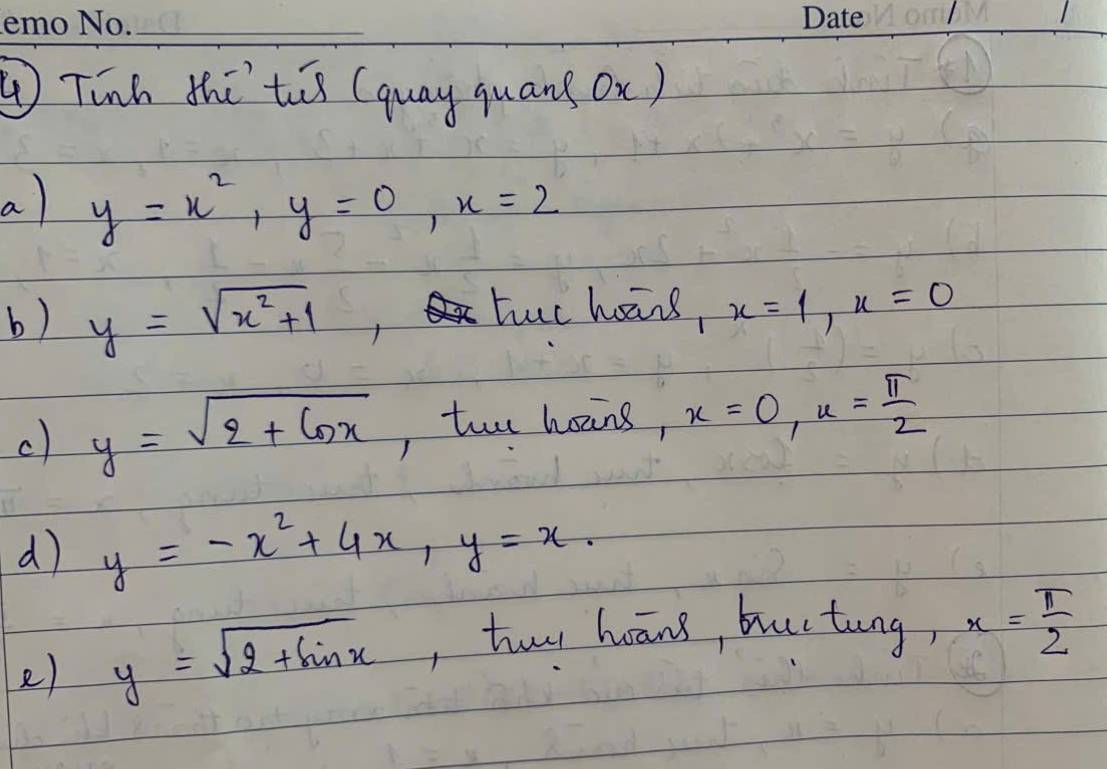 emo No. Date / /
4) Tính thể tích (quay quanh Ox)
a) y = x², y = 0, x = 2
b) y = √(x²+1), trục hoành, x = 1, x = 0
c) y = √(2 + cosx), trục hoành, x = 0, x = π/2
d) y = -x² + 4x, y = x.
e) y = √(2 + sinx), trục hoành, trục tung, x = π/2